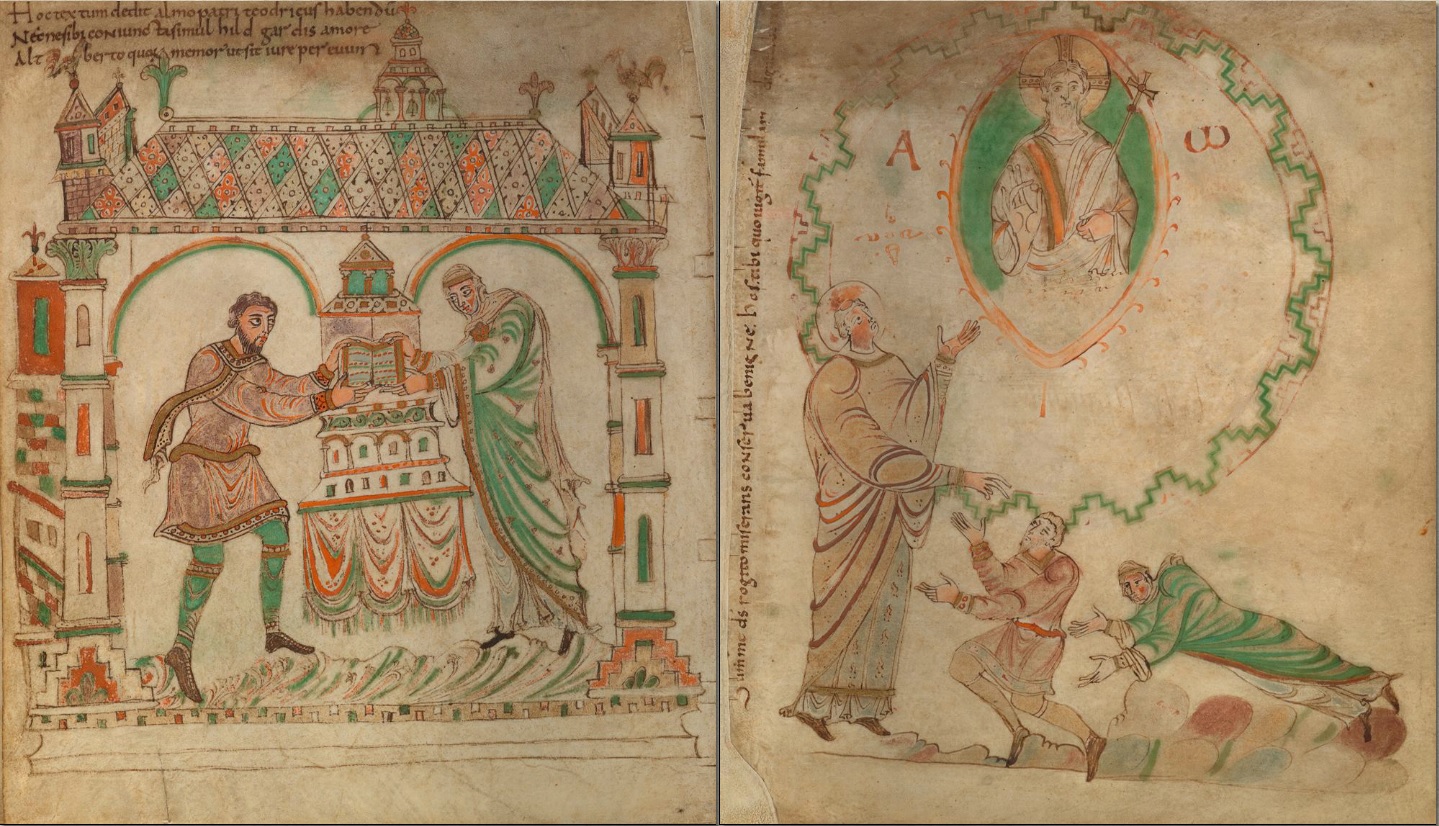 Hoc textum dedit almo patri teodricus habendū
Necne sibi coniuncta simul hildgardis amore
Altberto quoꝝ memor ut sit iure per euum
Α ω
Summe ds rogito miserans conserua benigne hos tibi quo